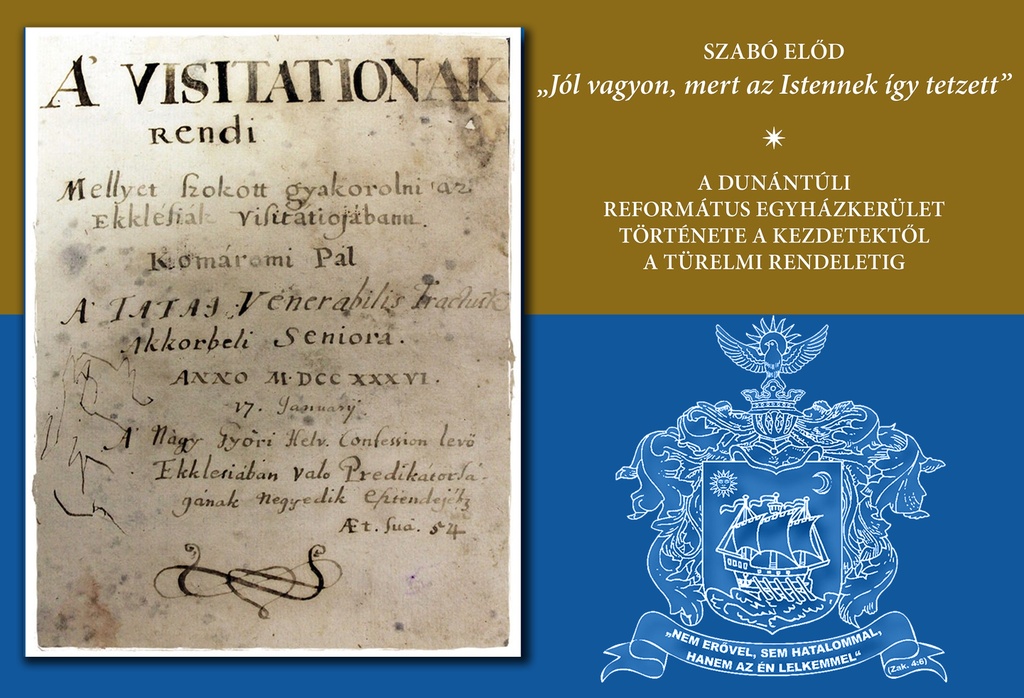 A' VISITATIONAK
Rendi
Mellyet szokott gyakorolni az
Ekklésiák visitátiojábann
Komáromi Pál
A' TATAI Venerabilis Tractus
Akkorbeli Seniora.
ANNO M.DCCXXXVI.
17. Januarÿ
A' Nagy Győri Helv. Confession levő
Ekklesiában való Predikátorsá-
gának negyedik
Æt. suá. 54
SZABÓ ELŐD
„Jól vagyon, mert az Istennek így tetzett”
A DUNÁNTÚLI
REFORMÁTUS EGYHÁZKERÜLET
TÖRTÉNETE A KEZDETEKTŐL
A TÜRELMI RENDELETIG
„NEM ERŐVEL, SEM HATALOMMAL,
HANEM AZ ÉN LELKEMMEL“
(Zak. 4:6)